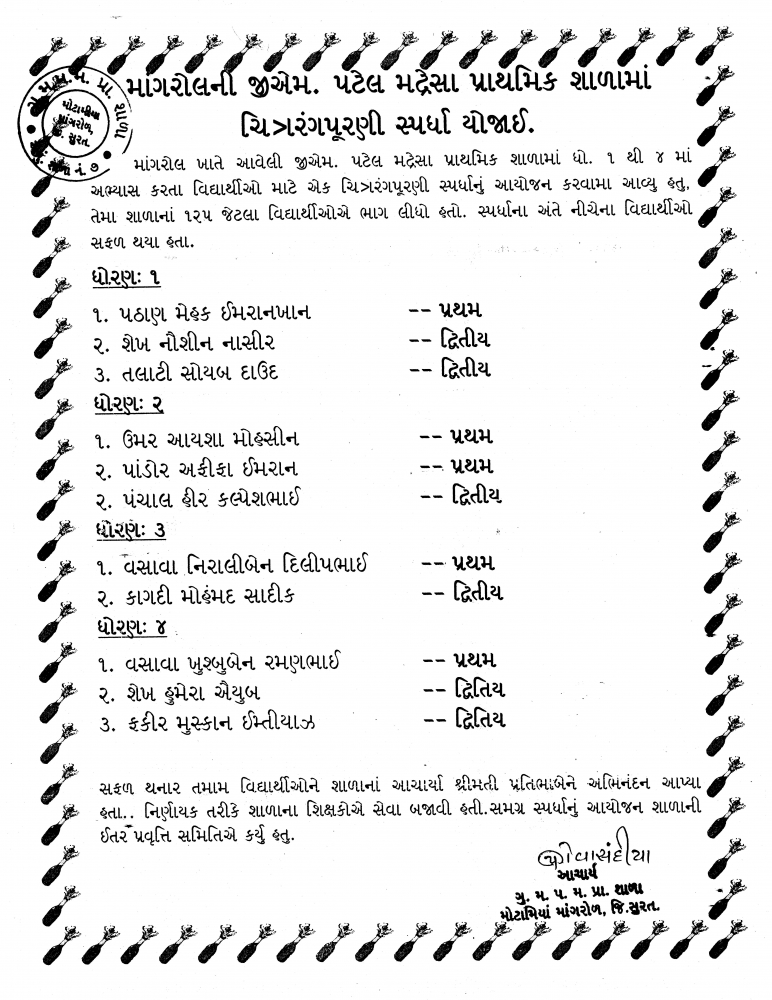 માંગરોલની જીએમ. પટેલ મદ્રેસા પ્રાથમિક શાળામાં
ચિત્રરંગપૂરણી સ્પર્ધા યોજાઈ.
મોટામીયા
માંગરોળ,
જિ. સુરત.
માંગરોલ ખાતે આવેલી જીએમ. પટેલ મદ્રેસા પ્રાથમિક શાળામાં ધો. ૧ થી ૪ માં
અભ્યાસ કરતા વિદ્યાર્થીઓ માટે એક ચિત્રરંગપૂરણી સ્પર્ધાનું આયોજન કરવામા આવ્યુ હતુ,
તેમા શાળાનાં ૧૨૫ જેટલા વિદ્યાર્થીઓએ ભાગ લીધો હતો. સ્પર્ધાના અંતે નીચેના વિદ્યાર્થીઓ
સફળ થયા હતા.
ધોરણઃ ૧
૧. પઠાણ મેહક ઈમરાનખાન -- પ્રથમ
૨. શેખ નૌશીન નાસીર -- દ્વિતીય
૩. તલાટી સોયબ દાઉદ -- દ્વિતીય
ધોરણઃ ૨
૧. ઉમર આયશા મોહસીન -- પ્રથમ
૨. પાંડોર અફીફા ઈમરાન -- પ્રથમ
૨. પંચાલ હીર કલ્પેશભાઈ -- દ્વિતીય
ધોરણઃ ૩
૧. વસાવા નિરાલીબેન દિલીપભાઈ -- પ્રથમ
૨. કાગદી મોહંમદ સાદીક -- દ્વિતીય
ધોરણઃ ૪
૧. વસાવા ખુશ્બુબેન રમણભાઈ -- પ્રથમ
૨. શેખ હુમેરા ઐયુબ -- દ્વિતિય
૩. ફકીર મુસ્કાન ઈમ્તીયાઝ -- દ્વિતિય
સફળ થનાર તમામ વિદ્યાર્થીઓને શાળાનાં આચાર્યા શ્રીમતી પ્રતિભાબેને અભિનંદન આપ્યા
હતા.. નિર્ણાયક તરીકે શાળાના શિક્ષકોએ સેવા બજાવી હતી.સમગ્ર સ્પર્ધાનું આયોજન શાળાની
ઈતર પ્રવૃત્તિ સમિતિએ કર્યુ હતુ.
આચાર્ય
ગુ. મ. પ. મ. પ્રા. શાળા
મોટામિયાં માંગરોળ, જિ.સુરત.